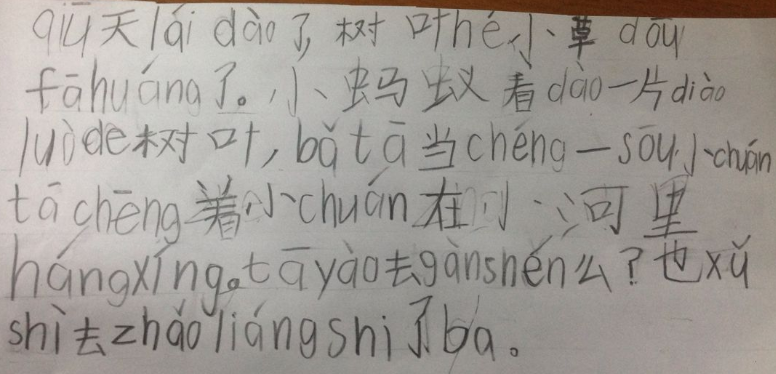 qiū天lái dào了,树叶hé小草dōu
fāhuáng了。小蚂蚁看dào一片diào
luòde树叶,bǎ tā当chéng一sōu小chuán
tā chēng着小chuán在小河里
hángxíng。tā yào去gànshén么?也xǔ
shì去zhǎo liángshi了ba。